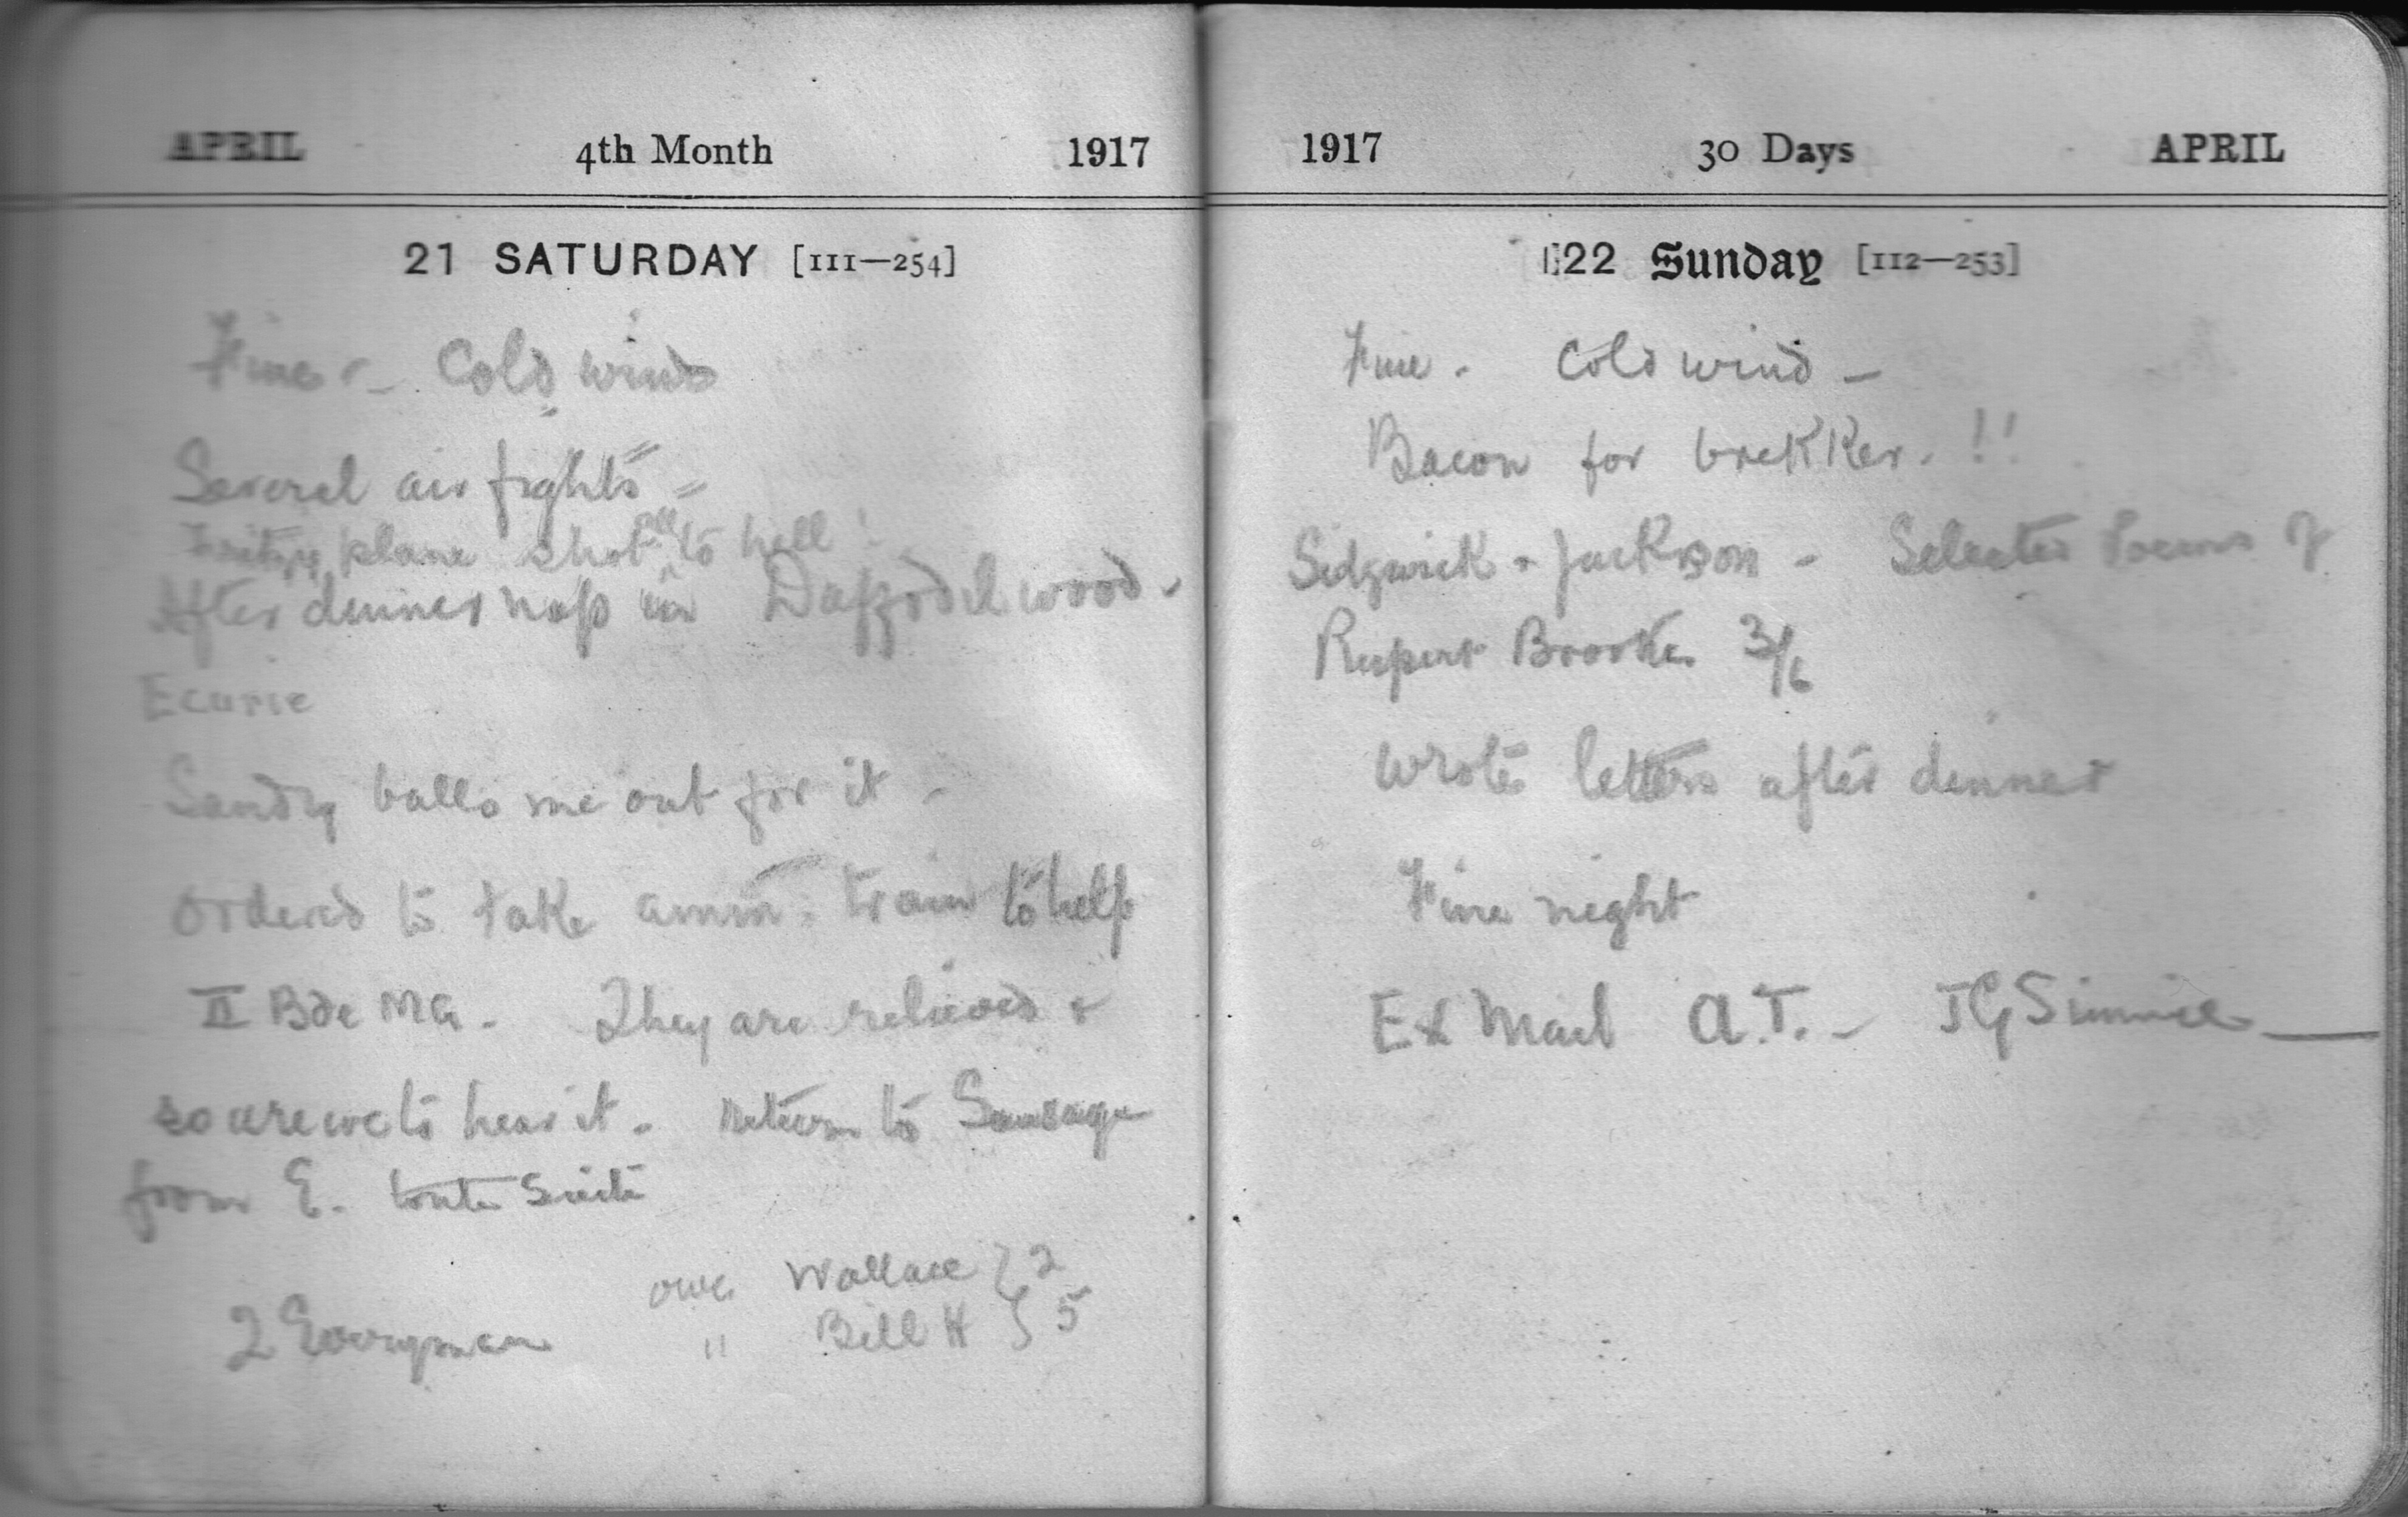 APRIL 4th Month 1917
21 SATURDAY [111—254]
Fine - Cold wind
Several air fights -
Fritzy plane shot all to hell !
After dinner nap in Daffodil wood -
Ecurie
Sandy balls me out for it -
Ordered to take amm. train to help
II Bde MG. They are relieved &
so are we to hear it. Return to Sausage
from E. toute suite
owe Wallace } 2
2 Everyman " Bill H } 5
1917 30 Days APRIL
22 Sunday [112—253]
Fine. Cold wind -
Bacon for brekker. !!
Sidgwick & Jackson - Selected Poems of
Rupert Brooke 3/6
Wrote letters after dinner
Fine night
Ex Mail A.T. -